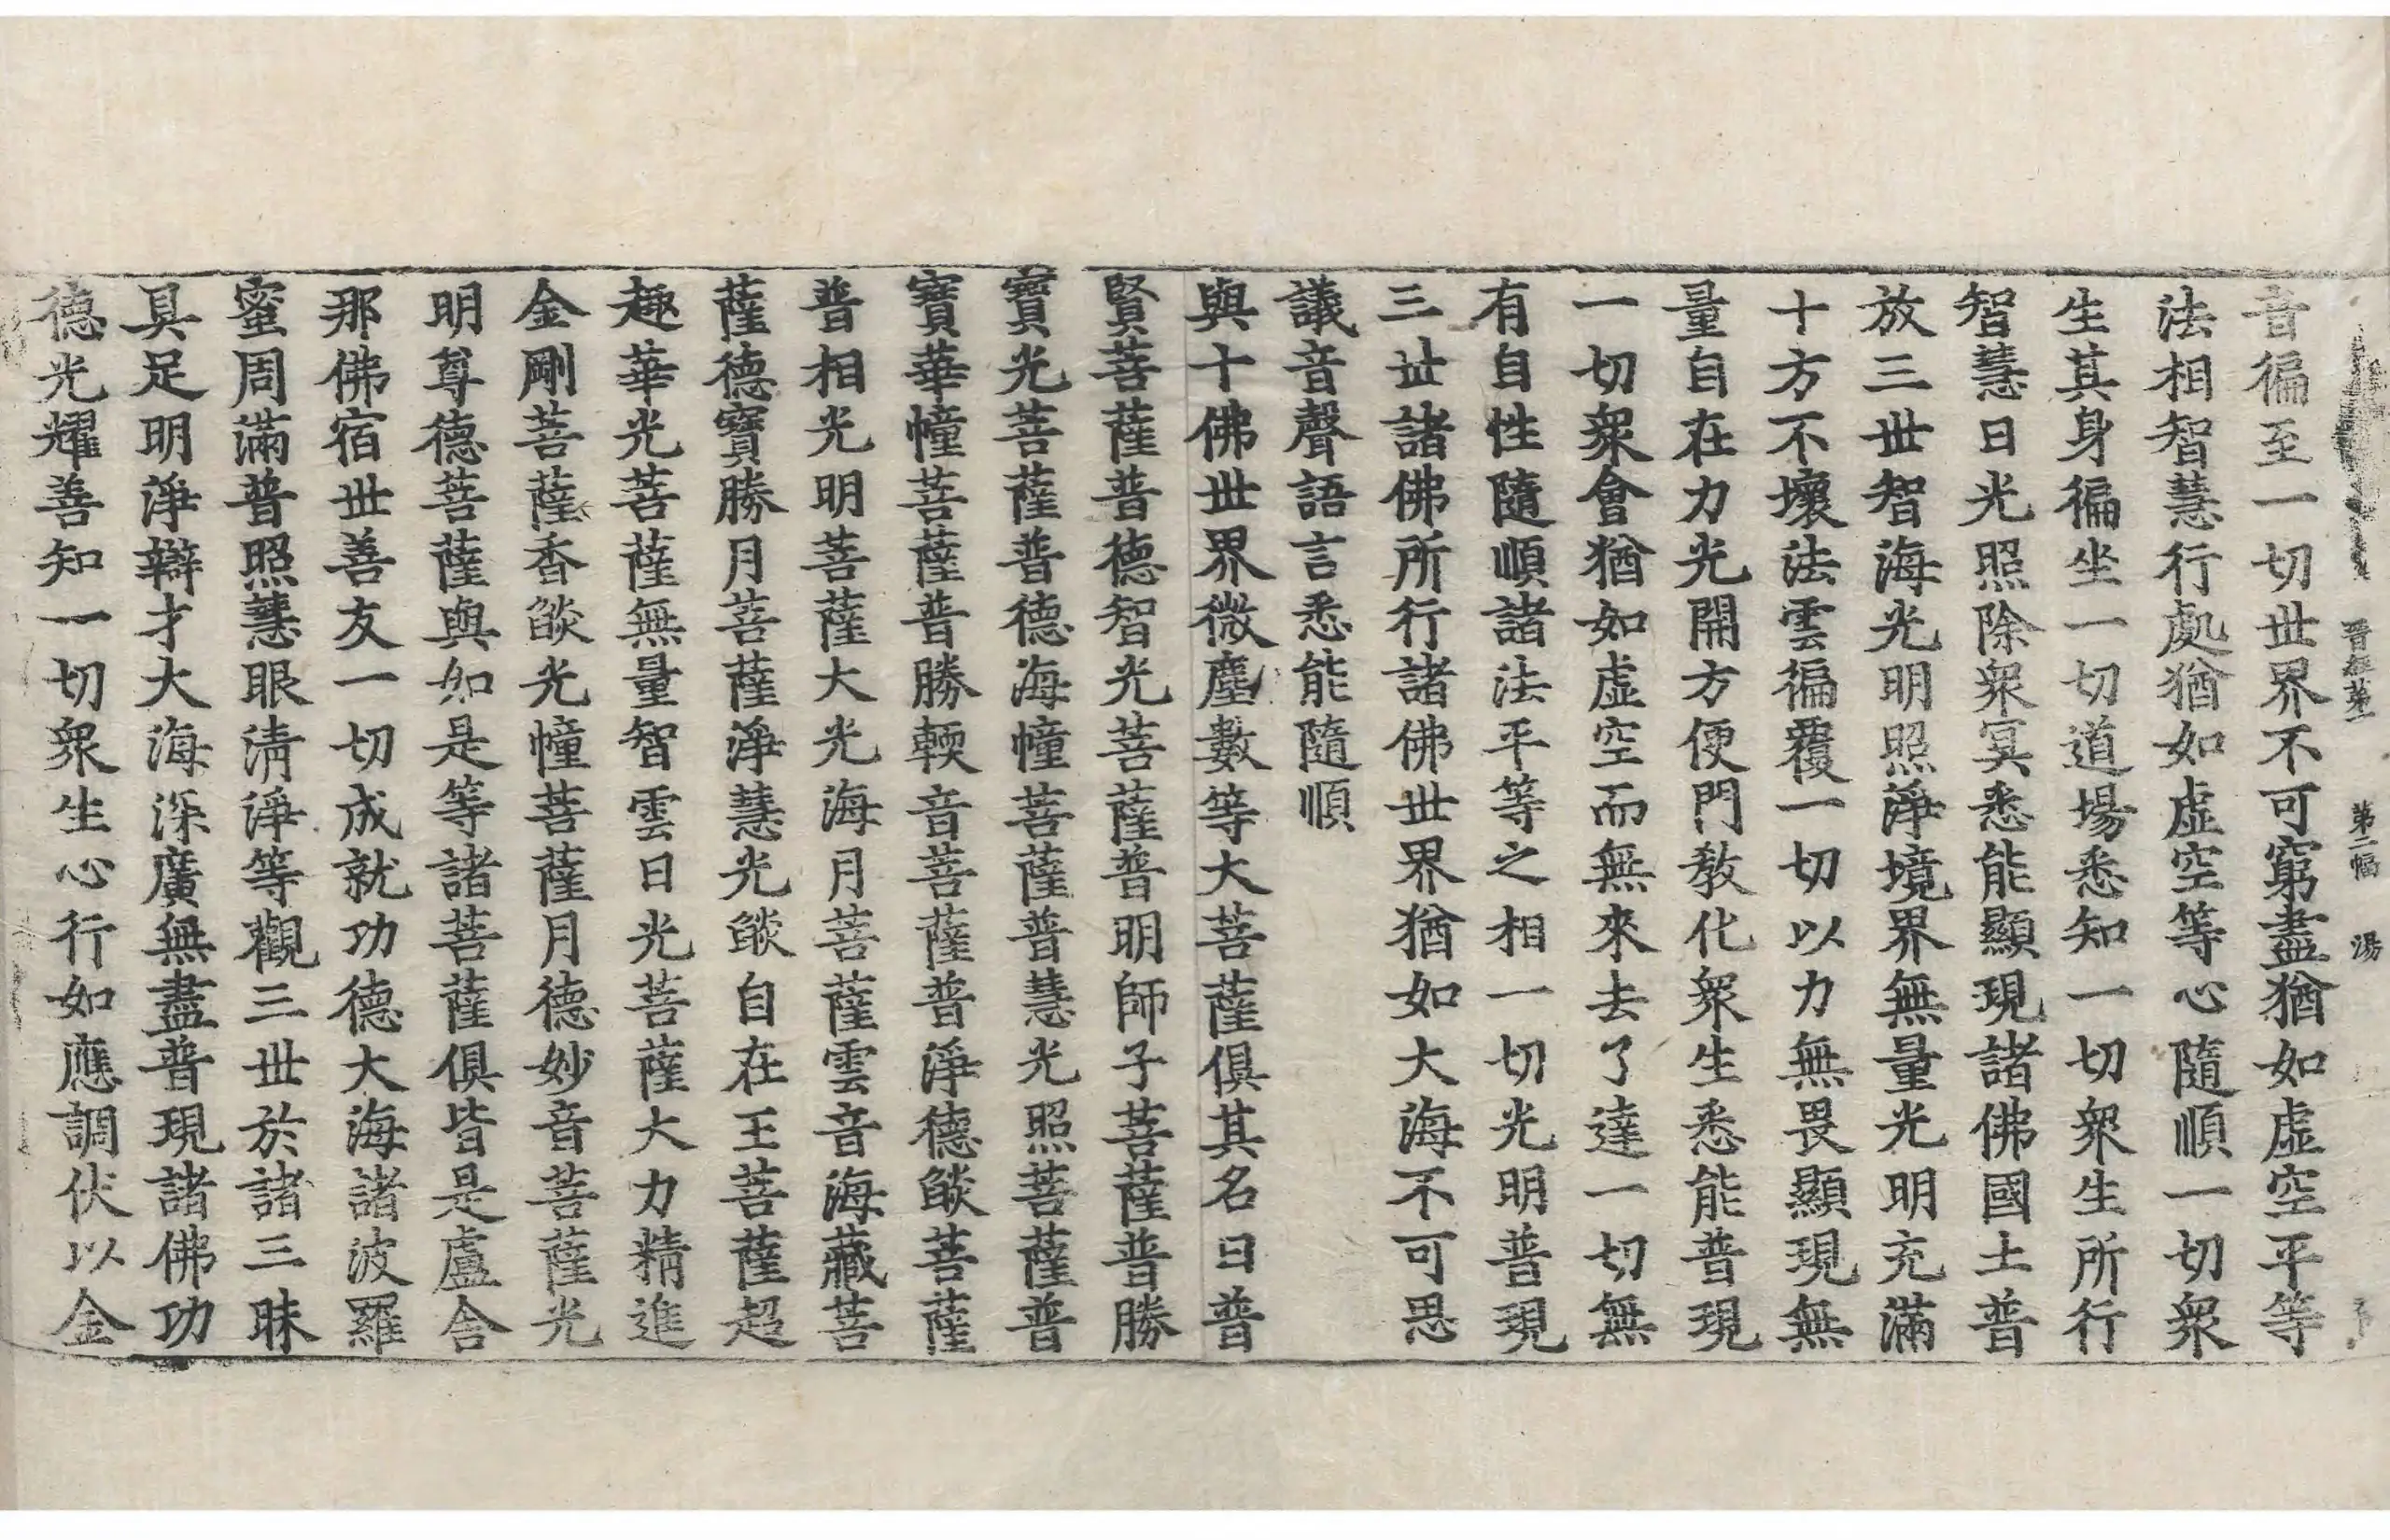 晋經第一 第二幅 湯
音徧至一切世界不可窮盡猶如虛空平等
法相智慧行處猶如虛空等心隨順一切衆
生其身徧坐一切道場悉知一切衆生所行
智慧日光照除衆冥悉能顯現諸佛國土普
放三世智海光明照淨境界無量光明充滿
十方不壞法雲徧覆一切以力無畏顯現無
量自在力光開方便門教化衆生悉能普現
一切衆會猶如虛空而無來去了達一切無
有自性隨順諸法平等之相一切光明普現
三世諸佛所行諸佛世界猶如大海不可思
議音聲語言悉能隨順
與十佛世界微塵數等大菩薩俱其名曰普
賢菩薩普德智光菩薩普明師子菩薩普勝
寶光菩薩普德海幢菩薩普慧光照菩薩普
寶華幢菩薩普勝輭音菩薩普淨德燄菩薩
普相光明菩薩大光海月菩薩雲音海藏菩
薩德寶勝月菩薩淨慧光燄自在王菩薩超
趣華光菩薩無量智雲日光菩薩大力精進
金剛菩薩香燄光幢菩薩月德妙音菩薩光
明尊德菩薩與如是等諸菩薩俱皆是盧舍
那佛宿世善友一切成就功德大海諸波羅
蜜周滿普照慧眼清淨等觀三世於諸三昧
具足明淨辯才大海深廣無盡普現諸佛功
德光耀善知一切衆生心行如應調伏以金